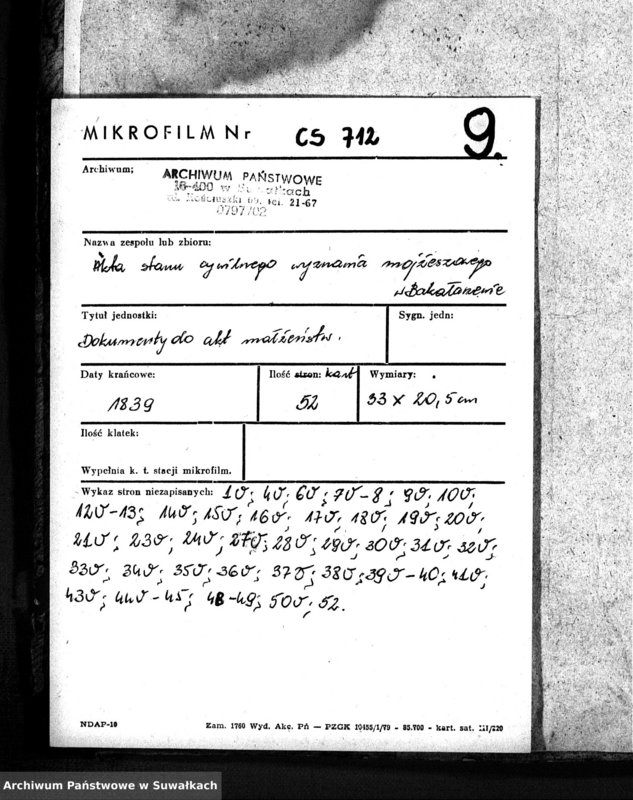 MIKROFILM Nr CS 712 9.
Archiwum;
ARCHIWUM PAŃSTWOWE
16-400 w Suwałkach
ul. Kościuszki 69, tel. 21-67
0797/02
Nazwa zespołu lub zbioru:
Akta stanu cywilnego wyznania mojżeszowego
w Bakałarzewie
Tytuł jednostki: Sygn. jedn:
Dokumenty do akt małżeństw.
Daty krańcowe: Ilość stron: kart Wymiary:
1839 52 33 x 20,5 cm
Ilość klatek:
Wypełnia k. t. stacji mikrofilm.
Wykaz stron niezapisanych: 1v; 4v; 6v; 7v-8; 9v; 10v;
12v-13; 14v; 15v; 16v; 17v; 18v; 19v; 20v;
21v; 23v; 24v; 27v; 28v; 29v; 30v; 31v; 32v;
33v; 34v; 35v; 36v; 37v; 38v; 39v-40; 41v;
43v; 44v-45; 48-49; 50v; 52.
NDAP-10 Zam. 1760 Wyd. Akc. Pń — PZGK 10455/1/79 - 85.700 - kart. sat. III/220
Archiwum Państwowe w Suwałkach